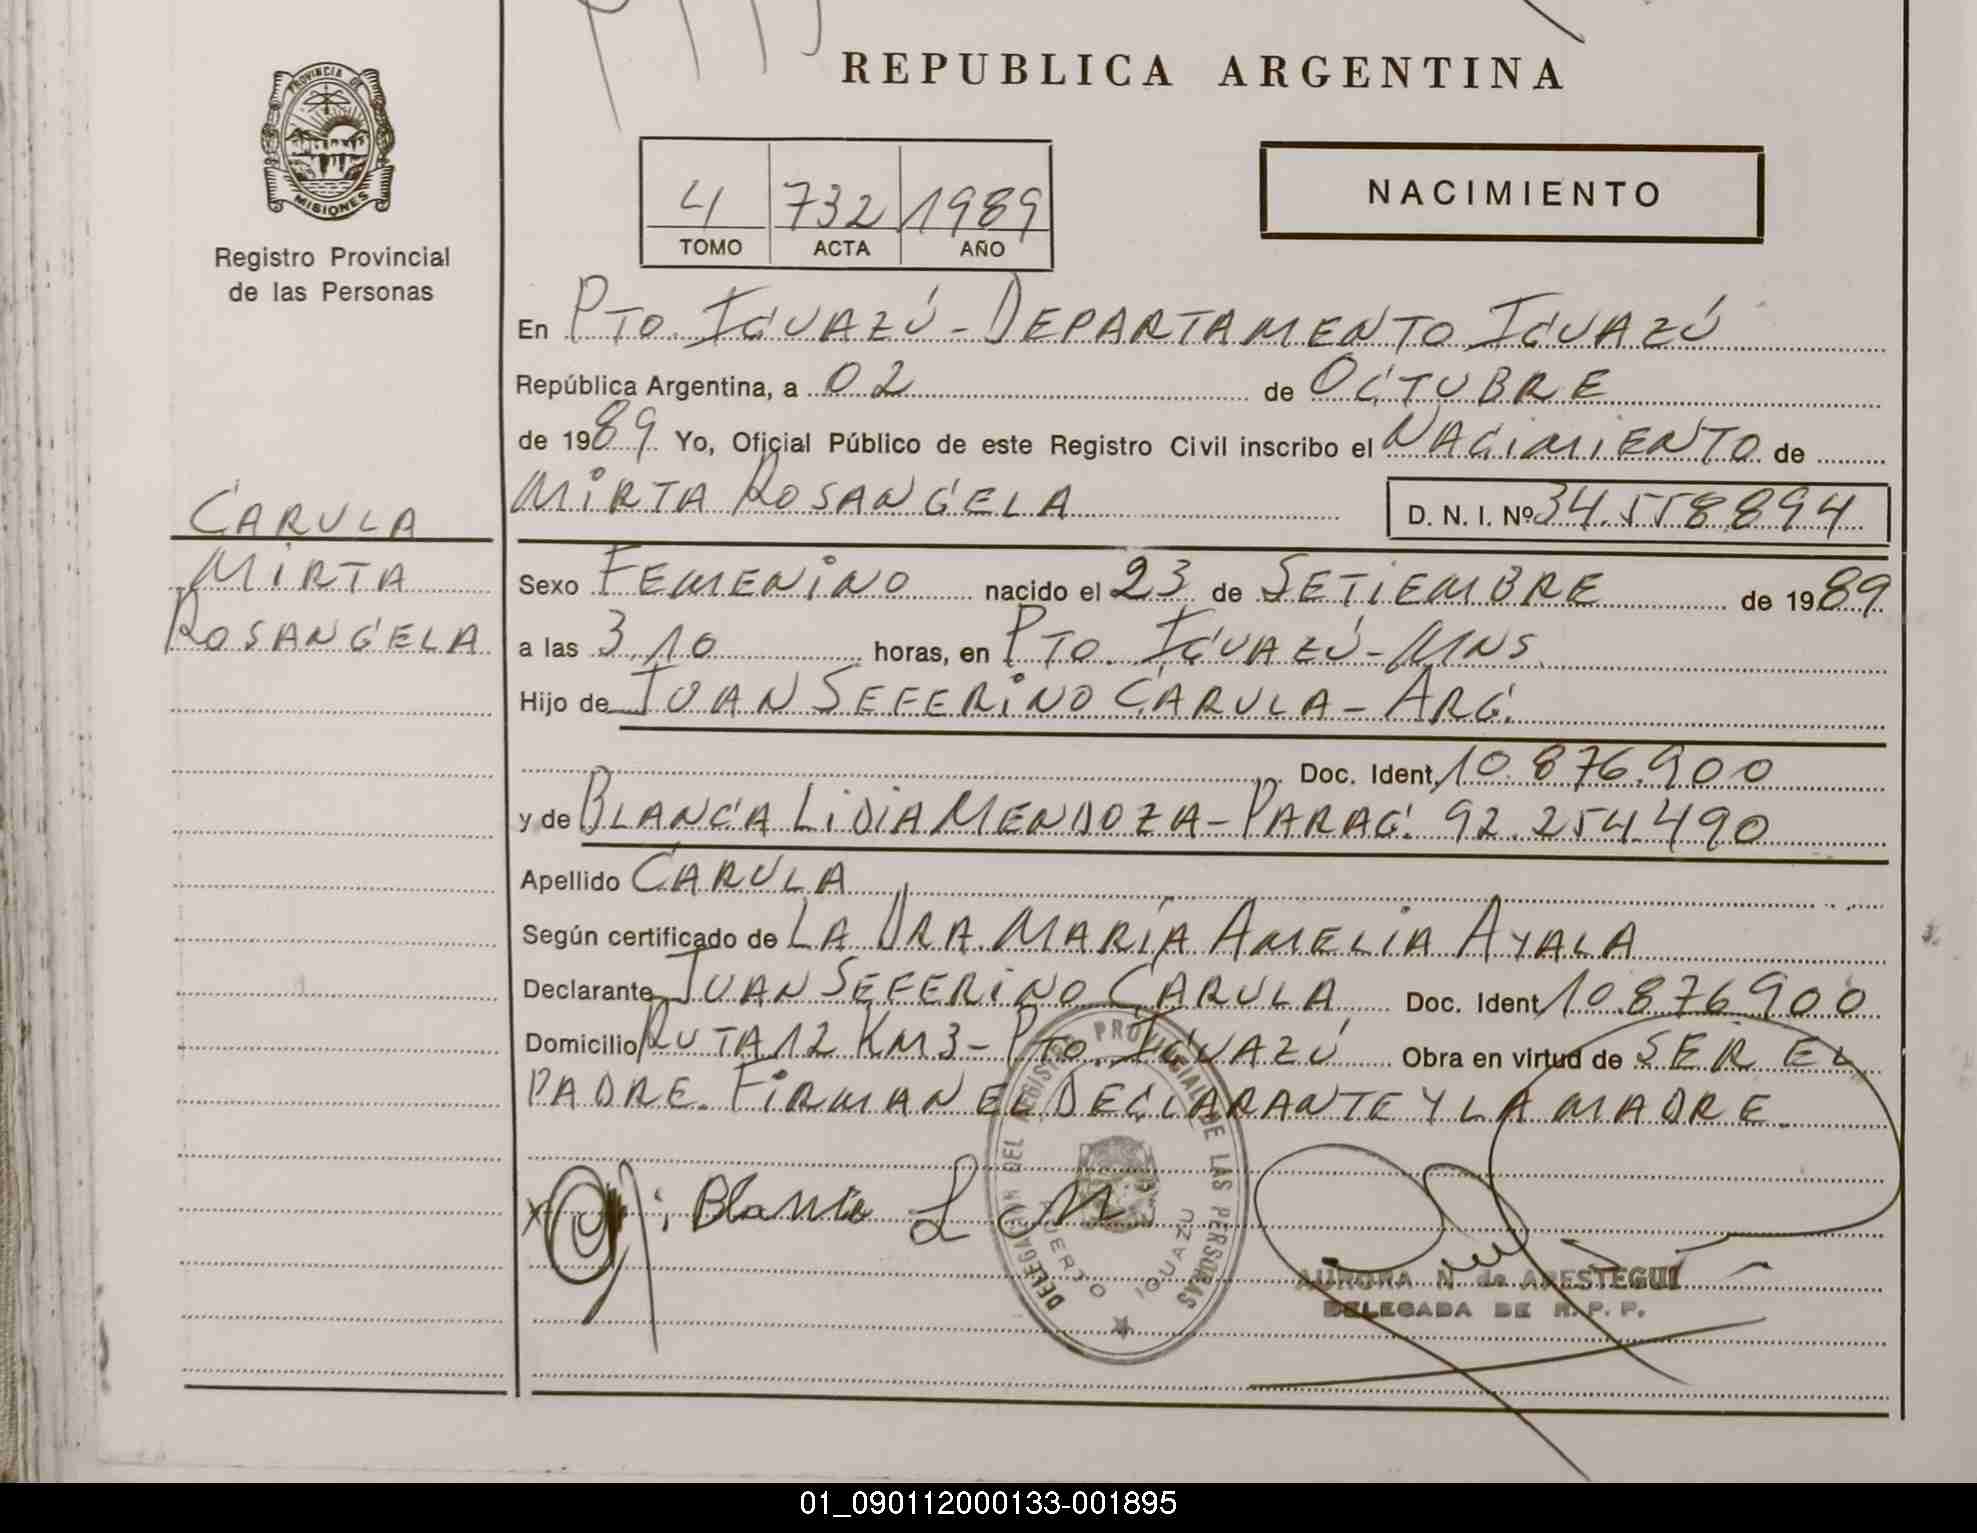 REPUBLICA ARGENTINA
PROVINCIA DE
MISIONES
Registro Provincial
de las Personas
4 732 1989
TOMO ACTA AÑO
NACIMIENTO
En PTO. IGUAZÚ - DEPARTAMENTO IGUAZÚ
República Argentina, a 02 de OCTUBRE
de 1989 Yo, Oficial Público de este Registro Civil inscribo el NACIMIENTO de
MIRTA ROSANGELA D. N. I. Nº 34.558.894
CARULA
MIRTA
ROSANGELA
Sexo FEMENINO nacido el 23 de SETIEMBRE de 1989
a las 3,10 horas, en PTO. IGUAZÚ - MNS.
Hijo de JUAN SEFERINO CARULA - ARG.
Doc. Ident. 10.876.900
y de BLANCA LIDIA MENDOZA - PARAG. 92.254.490
Apellido CARULA
Según certificado de LA DRA. MARÍA AMELIA AYALA
Declarante JUAN SEFERINO CARULA Doc. Ident 10.876.900
Domicilio RUTA 12 KM 3 - PTO. IGUAZÚ Obra en virtud de SER EL
PADRE. FIRMAN EL DECLARANTE Y LA MADRE.
Blanca L M
DELEGACION DEL REGISTRO PROVINCIAL DE LAS PERSONAS
PUERTO IGUAZU
AURORA N. de ARESTEGUI
DELEGADA DE R. P. P.
01_090112000133-001895